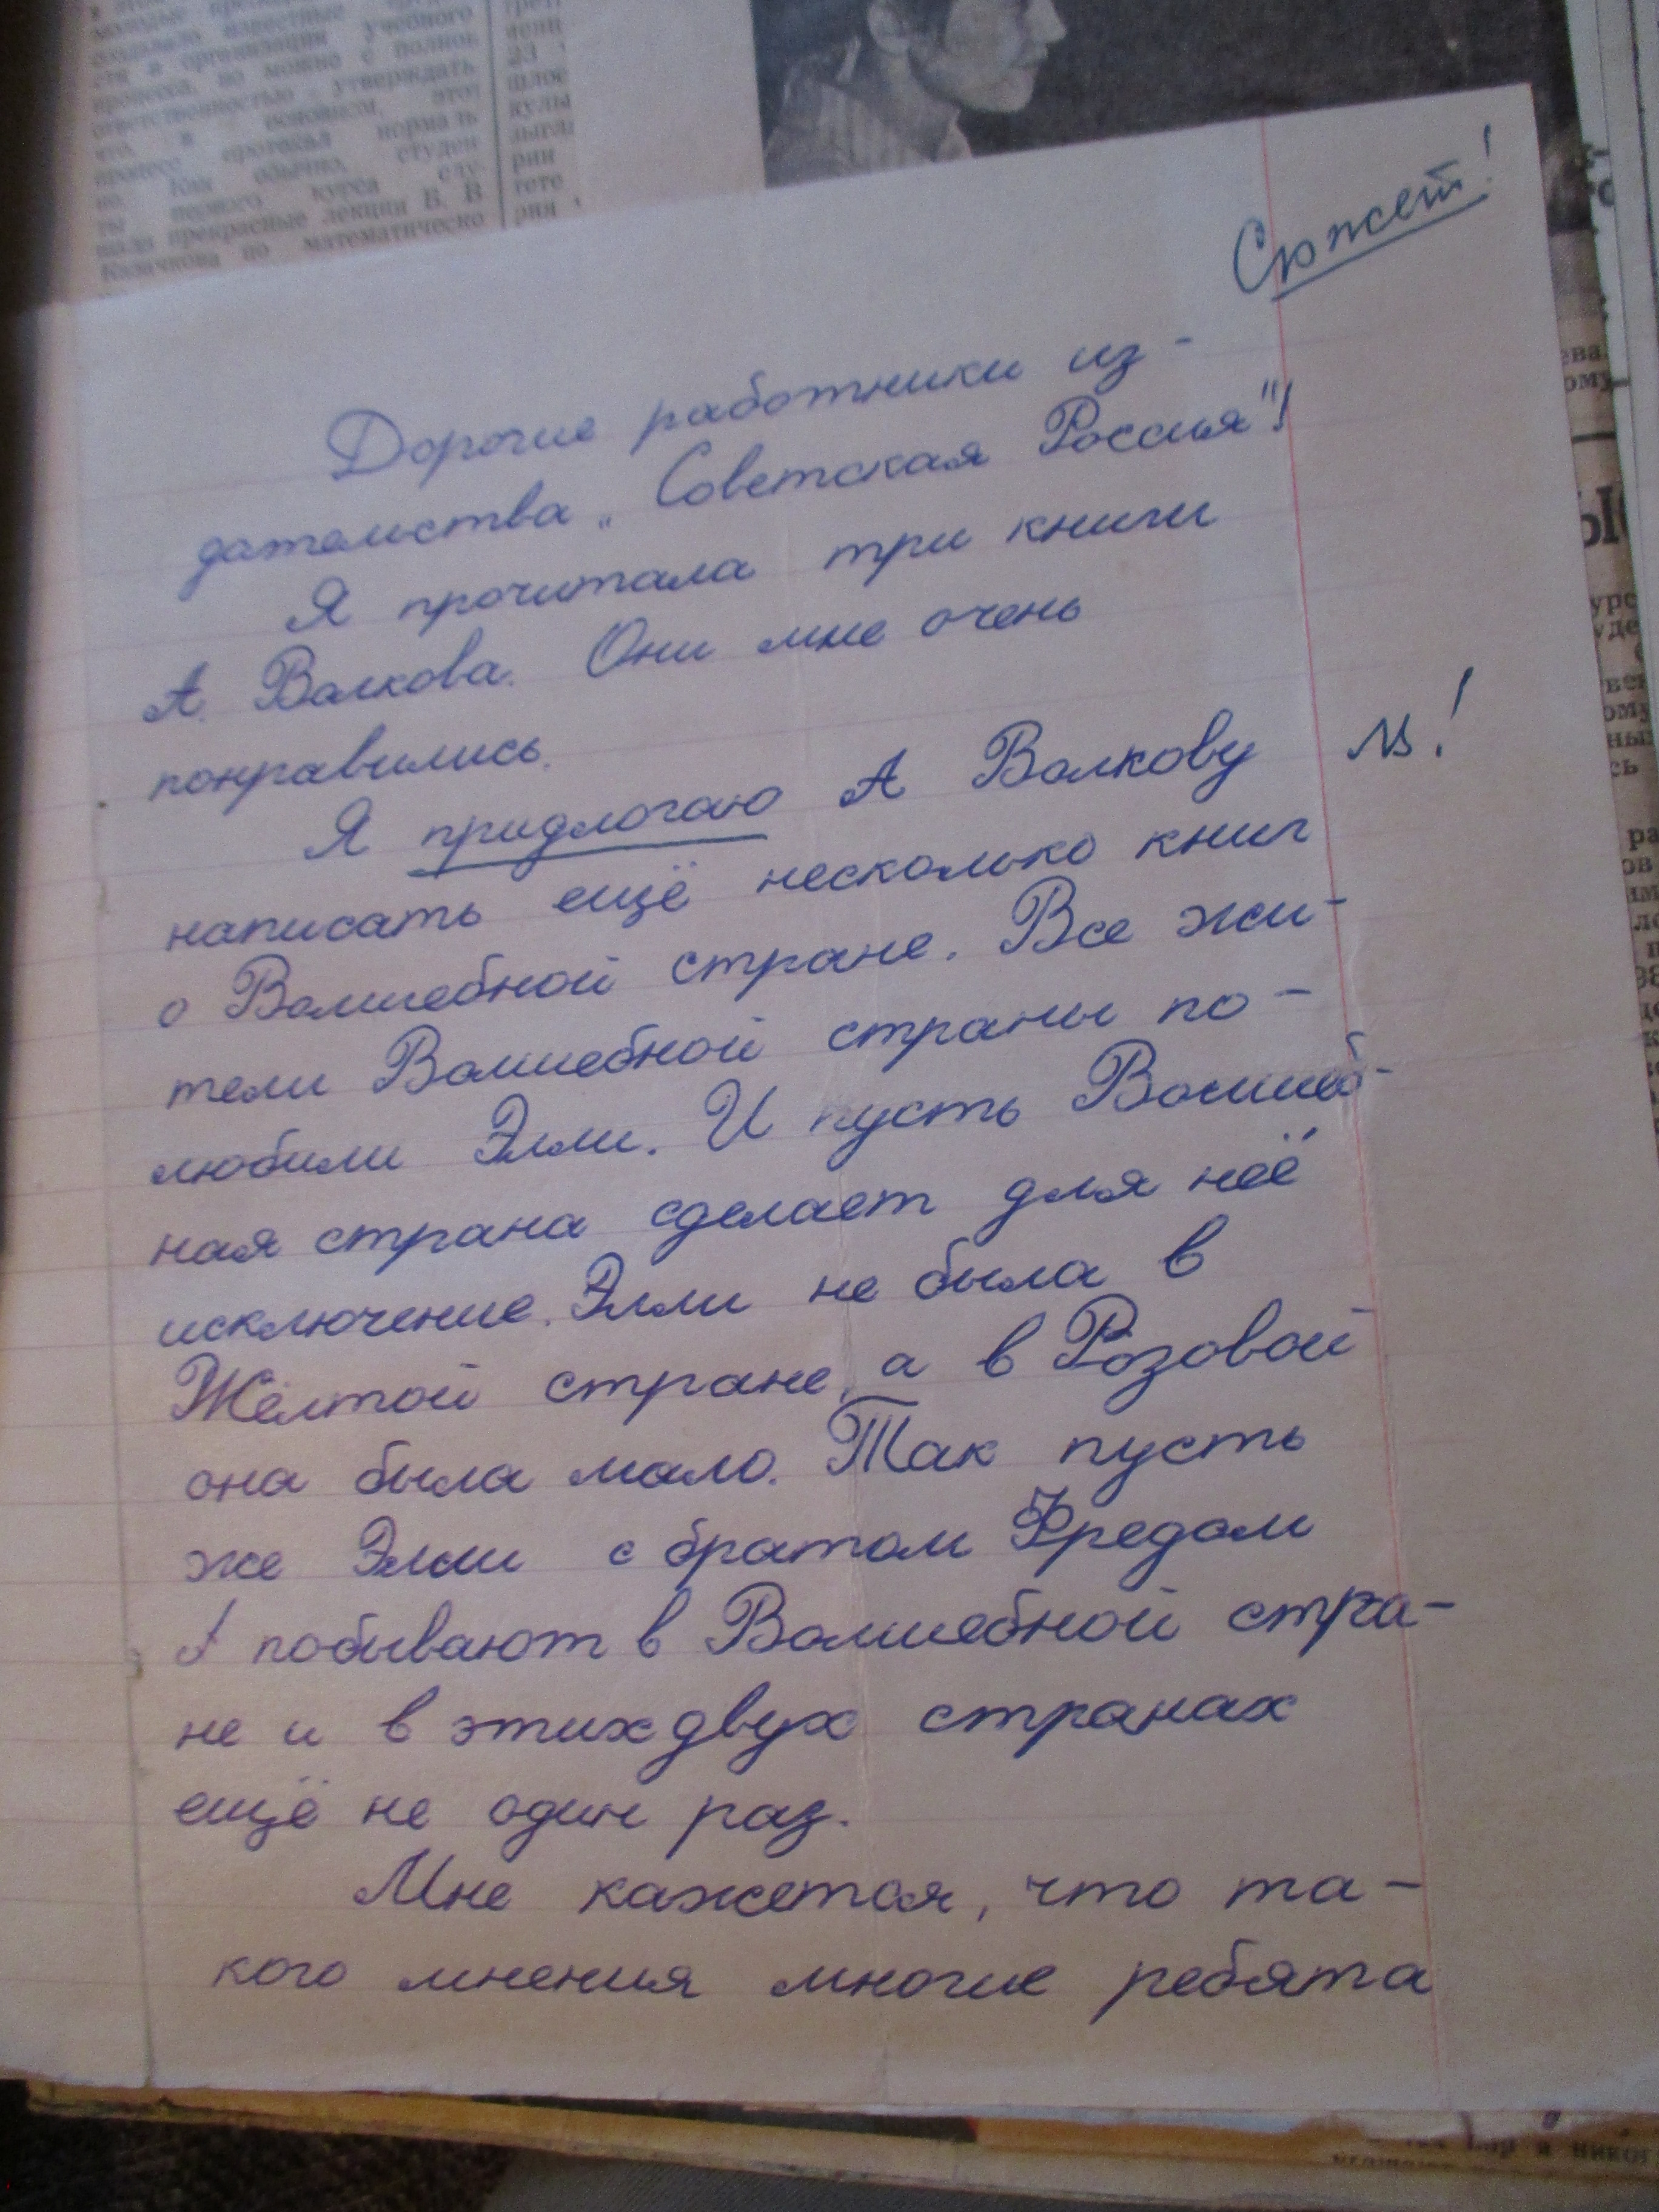 ственностью утверждать
процесс протекал нормаль
но. Как обычно, студен
ты первого курса слу-
шали прекрасные лекции В. В
Казачкова по математическо
Сюжет!
Дорогие работники из-
дательства „Советская Россия"!
Я прочитала три книги
А. Волкова. Они мне очень
понравились.
Я придлогаю А Волкову NB!
написать ещё несколько книг
о Волшебной стране. Все жи-
тели Волшебной страны по-
любили Элли. И пусть Волшеб-
ная страна сделает для неё
исключение. Элли не была в
Жёлтой стране, а в Розовой
она была мало. Так пусть
же Элли с братом Фредом
побывают в Волшебной стра-
не и в этих двух странах
ещё не один раз.
Мне кажется, что та-
кого мнения многие ребята